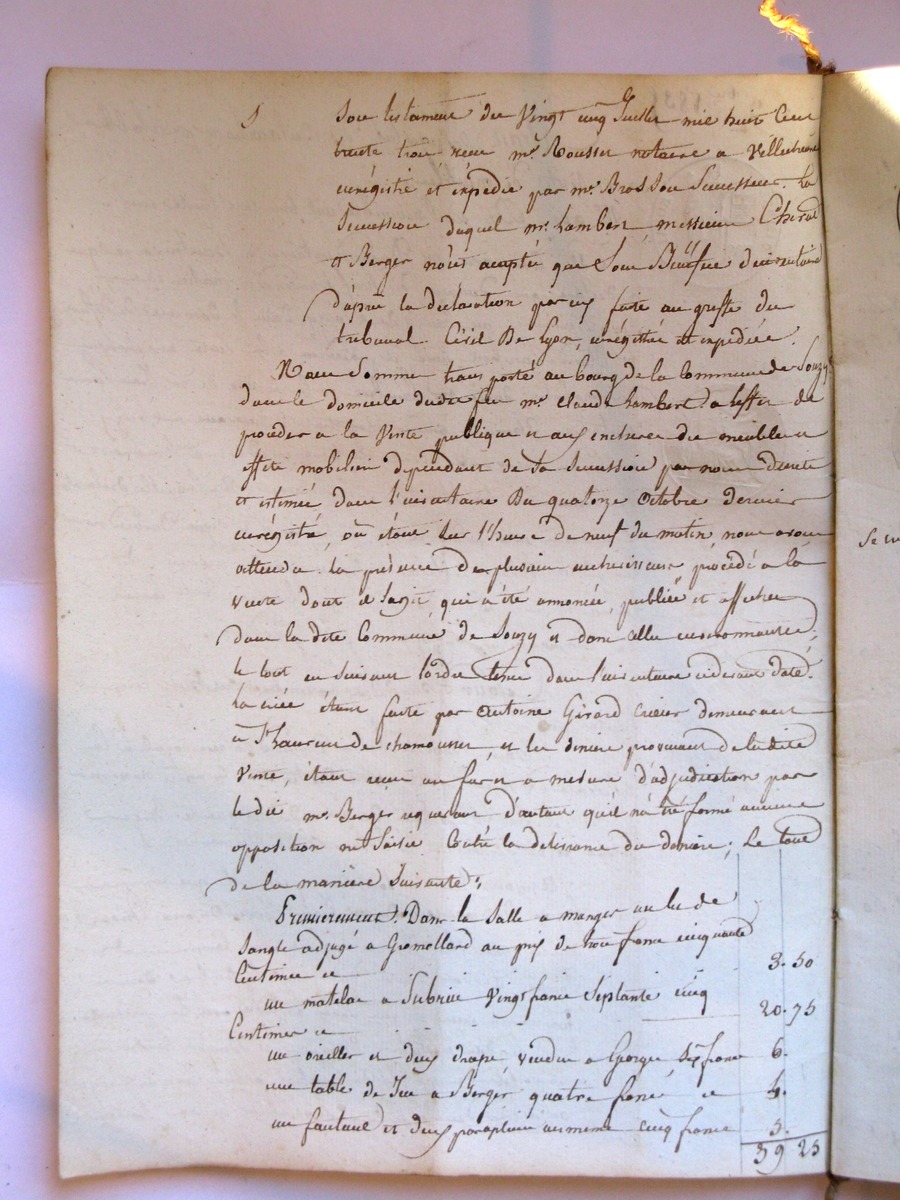 son testament du vingt cinq Juillet mil huit Cent
trente trois reçu me. Rousset notaire a Villeurbanne
enrégistré et expédié par me. Bros son Successeur. La
Succession duquel mr. Lambert, messieurs Cherad
et Berger n'ont acceptée que Sous Bénéfice d'inventaire
d'après la déclaration par eux faite au greffe du
tribunal Civil De Lyon, enrégistrée et expédiée.
Nous Somme transporté au bourg de la Commune de Souzy
dans le domicile dudit feu mr. Claude Lambert a leffet de
procéder a la Vente publique et aux enchères des meubles et
effets mobiliers dépendant de sa Succession par nous décrits
et estimés dans l'inventaire du quatorze Octobre dernier
enrégistré, où étant sur l'heure de neuf du matin, nous avons
attendu la présence de plusieurs enchérisseurs, procédé a la
vente dont il Sagit qui a été annoncée, publiée et affichée
dans la dite Commune de Souzy et dans celles environnantes,
le tout en Suivant l'ordre tenu dans l'inventaire cidevant daté.
La criée étant faite par Antoine Girard crieur demeurant
a St Laurent de chamousset, et les deniers provenant de ladite
Vente, étant reçus au fur et a mesure d'adjudication par
ledit mr. Berger requerant d'autant qu'il n'a été formé aucune
opposition ni Saisie Contre la délivrance des deniers; Le tout
de la manière Suivante:
Premierement. Dans la Salle a manger un lit de
Sangle adjugé a Gromollard au prix de trois francs cinquante
Centimes ci 3. 50
un matelas a Subrin Vingt francs Septante cinq
Centimes ci 20. 75
un oreiller et deux draps vendus a George Six francs 6.
une table de Jeu a Berger quatre francs ci 4.
un fauteuil et deux parapluies au même cinq francs 5.
39 25